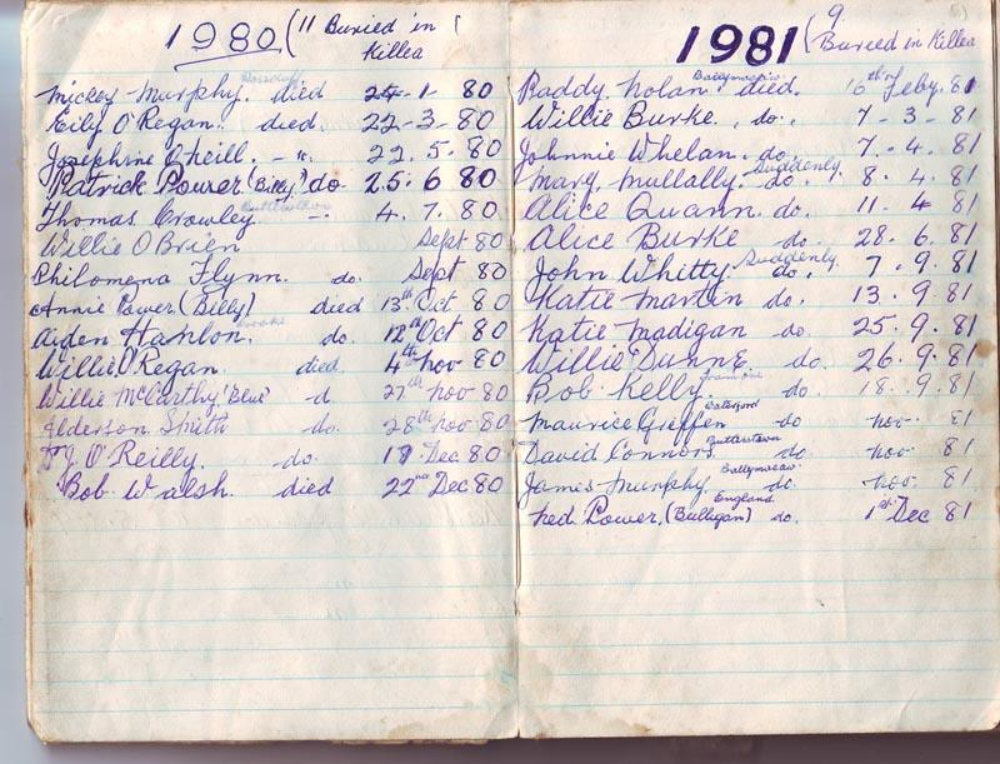 1980 (11 Buried in
Killea
Mickey Murphy. died 24-1-80
Eily O'Regan. died. 22-3-80
Josephine O'Neill. - ". 22.5.80
Patrick Power (Billy) do. 25.6 80
Butlerstown
Thomas Crowley 4.7.80
Willie O Brien Sept 80
Philomena Flynn. do. Sept 80
Annie Power (Billy) died 13th Oct 80
Aiden Hanlon. do. 12th Oct 80
Willie O'Regan. died. 4th Nov 80
Willie McCarthy 'Blue' d 27th Nov 80
Alderson Smith do. 28th Nov 80
O'Reilly. do. Dec 80
Bob Walsh. died 22nd Dec 80
1981 (9
Buried in Killea
Paddy Nolan. died. 16th of Feby. 81
Willie Burke. do. 7-3-81
Johnnie Whelan. do. 7.4.81
Suddenly.
Marg. Mullally. do. 8.4.81
Alice Quann. do. 11.4 81
Alice Burke do. 28.6.81
Suddenly.
John Whitty. do. 7.9.81
Katie Martin do. 13.9.81
Katie Madigan do. 25.9.81
Willie Dunne do. 26.9.81
Tramore
Bob Kelly. do. 18.9.81
Waterford
Maurice Griffen do Nov. 81
Butlerstown
David Connors do Nov 81
James Murphy do. Nov. 81
England
Ned Power. (Bulligan) do. 1st Dec 81